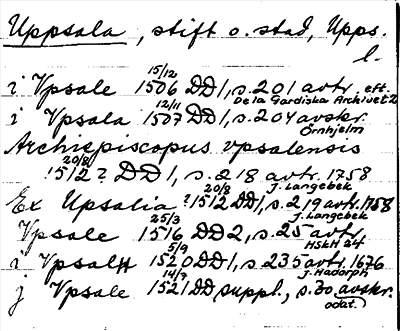 Uppsala, stift o. stad, Upps. l.
i Vpsale 15/12 1506 DD 1, s. 201 avtr. eft. De la Gardiska Archivet 2
i Vpsala 12/11 1507 DD 1, s. 204 avskr. Örnhjelm
Archiepiscopus vpsalensis
20/8 1512? DD 1, s. 218 avtr. 1758 J. Langebek
Ex Upsalia 20/8 ?1512 DD 1, s. 219 avtr. 1758 J. Langebek
Vpsale 25/3 1516 DD 2, s. 25 avtr. HSkH 24
i Vpsall 5/9 1520 DD 1, s. 235 avtr. 1676 J. Hadorph
j Vpsale 14/9 1521 DD suppl., s. 30 avskr. odat.